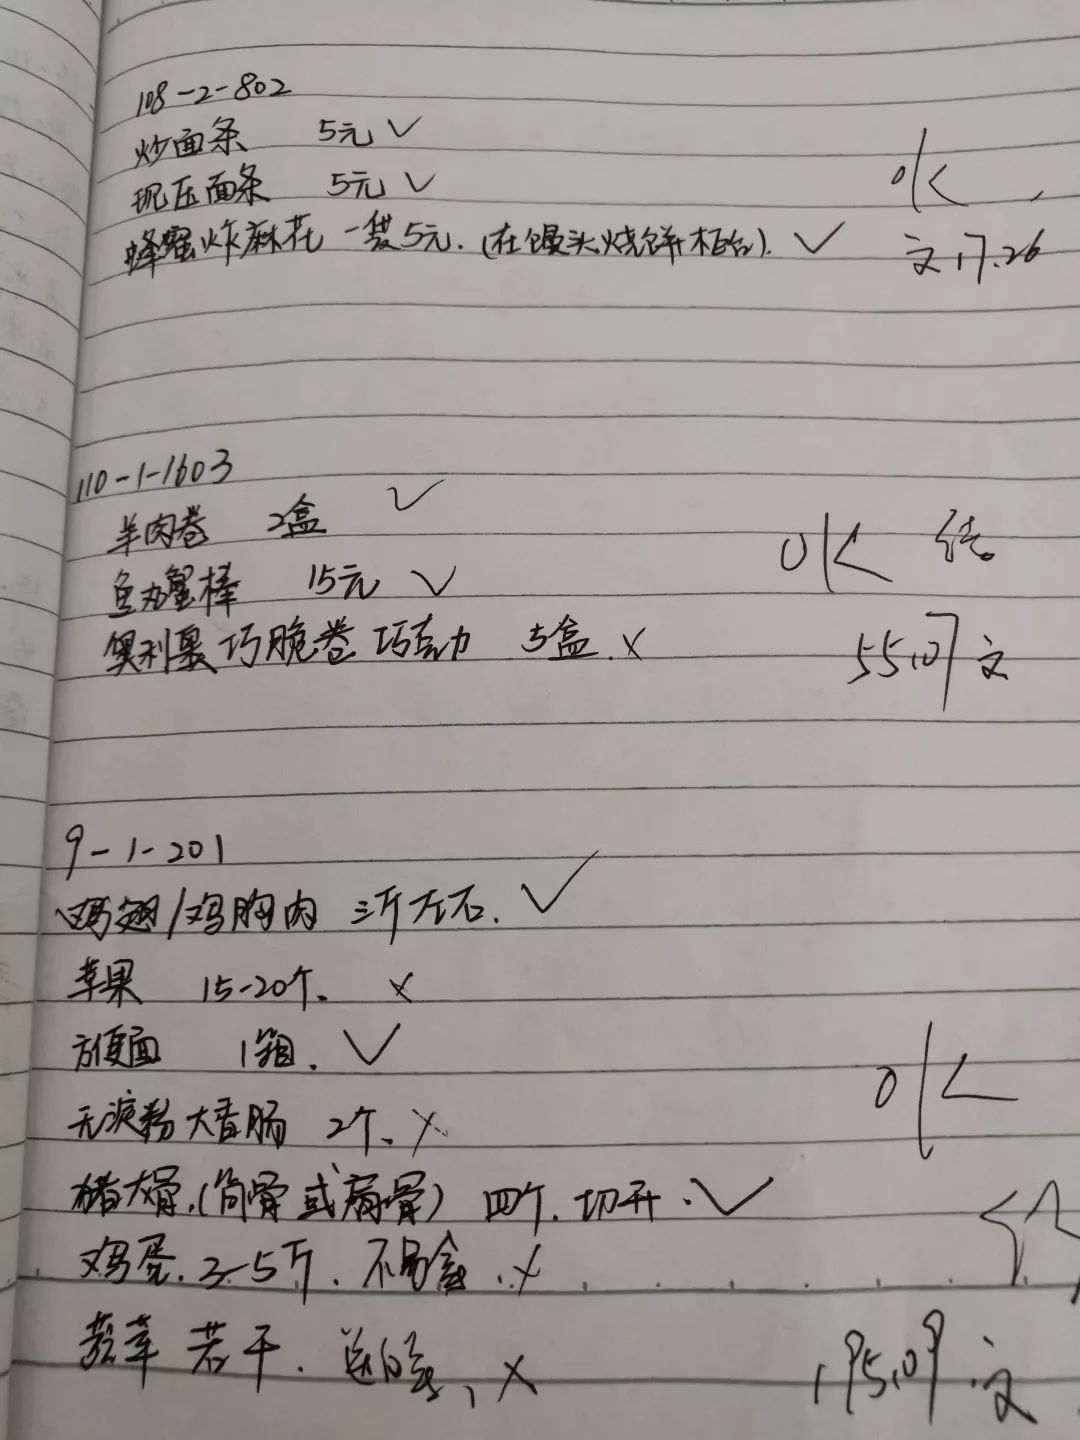 108-2-802
炒面条 5元 ✓
OK
现压面条 5元 ✓
蜂蜜炸麻花 一袋5元.(在馒头烧饼柜台). ✓
文 17.26
110-1-1603
羊肉卷 2盒 ✓
OK
鱼丸蟹棒 15元 ✓
奥利奥巧脆卷 巧克力 5盒. ×
55.07 文
9-1-201
鸡翅/鸡胸肉 三斤左右. ✓
苹果 15-20个. ×
方便面 1箱. ✓
OK
无淀粉大香肠 2个. ×
猪大骨.(筒骨或扇骨) 四个. 切开. ✓
鸡蛋. 3-5斤. ×
若干. ×
195.09 文